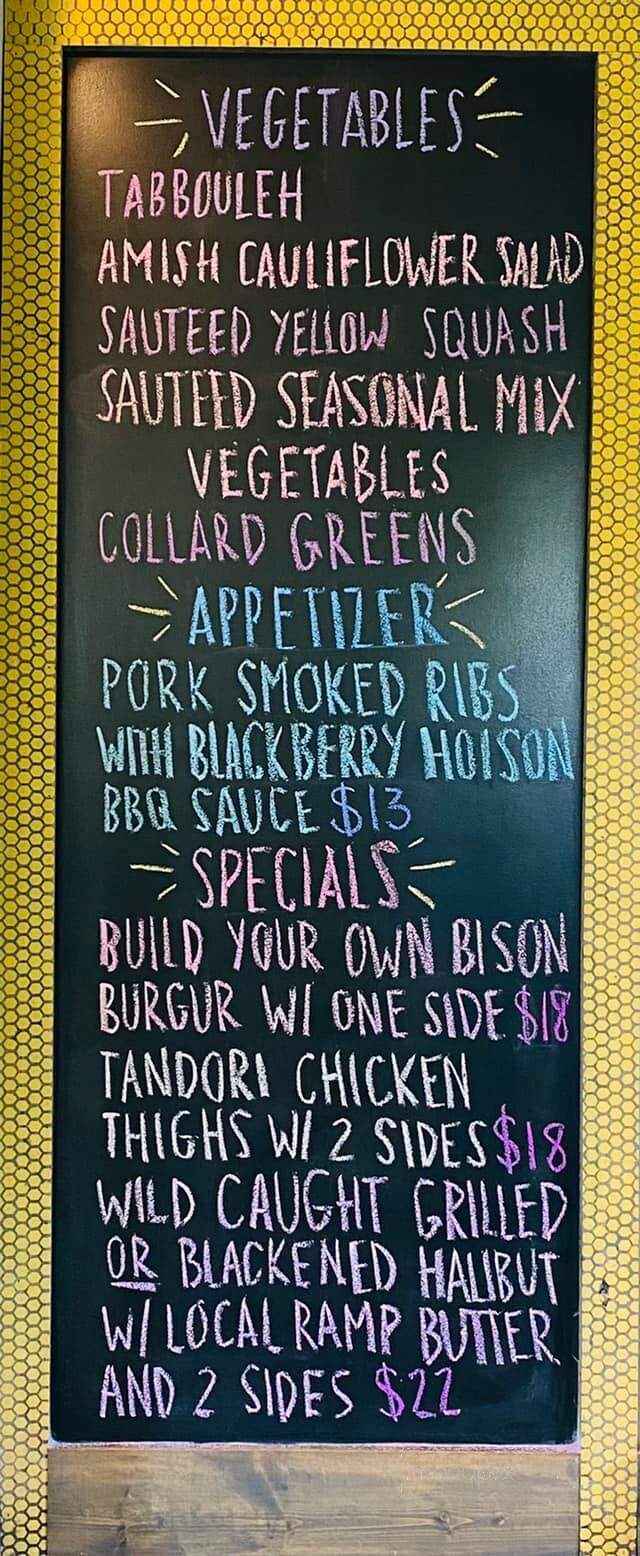 VEGETABLES
TABBOULEH
AMISH CAULIFLOWER SALAD
SAUTEED YELLOW SQUASH
SAUTEED SEASONAL MIX
VEGETABLES
COLLARD GREENS
APPETIZER
PORK SMOKED RIBS
WITH BLACKBERRY HOISON
BBQ SAUCE $13
SPECIALS
BUILD YOUR OWN BISON
BURGUR W/ ONE SIDE $18
TANDORI CHICKEN
THIGHS W/ 2 SIDES $18
WILD CAUGHT GRILLED
OR BLACKENED HALIBUT
W/ LOCAL RAMP BUTTER
AND 2 SIDES $22